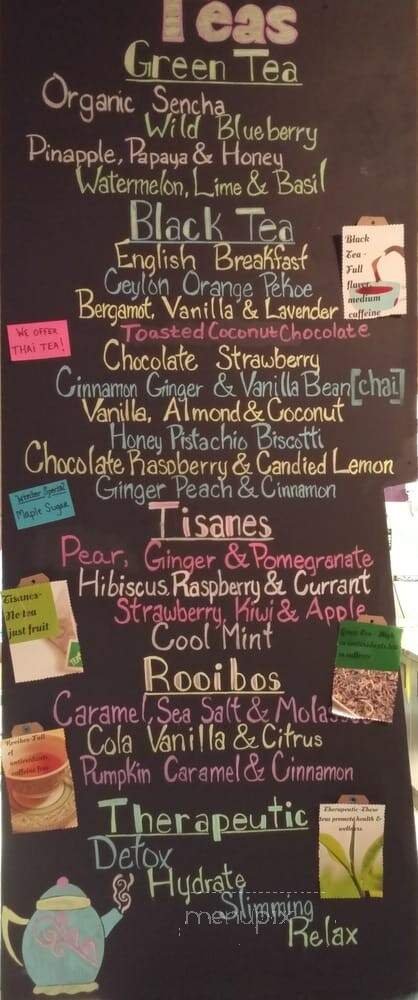 Teas
Green Tea
Organic Sencha
Wild Blueberry
Pinapple, Papaya & Honey
Watermelon, Lime & Basil
Black Tea
English Breakfast
Ceylon Orange Pekoe
Bergamot, Vanilla & Lavender
Toasted Coconut Chocolate
Chocolate Strawberry
Cinnamon Ginger & Vanilla Bean [chai]
Vanilla, Almond & Coconut
Honey Pistachio Biscotti
Chocolate Raspberry & Candied Lemon
Ginger Peach & Cinnamon
Tisanes
Pear, Ginger & Pomegranate
Hibiscus, Raspberry & Currant
Strawberry, Kiwi & Apple
Cool Mint
Rooibos
Caramel, Sea Salt & Molasses
Cola Vanilla & Citrus
Pumpkin Caramel & Cinnamon
Therapeutic
Detox
Hydrate
Slimming
Relax
Black
Tea -
Full
flavor,
medium
caffeine
WE OFFER
THAI TEA!
Winter Special
Maple Sugar
Tisanes-
No tea
just fruit
Green Tea - High
in antioxidants less
caffeine
Rooibos-Full
of
antioxidants
caffeine free
Therapeutic-These
teas promote health &
wellness
menupix